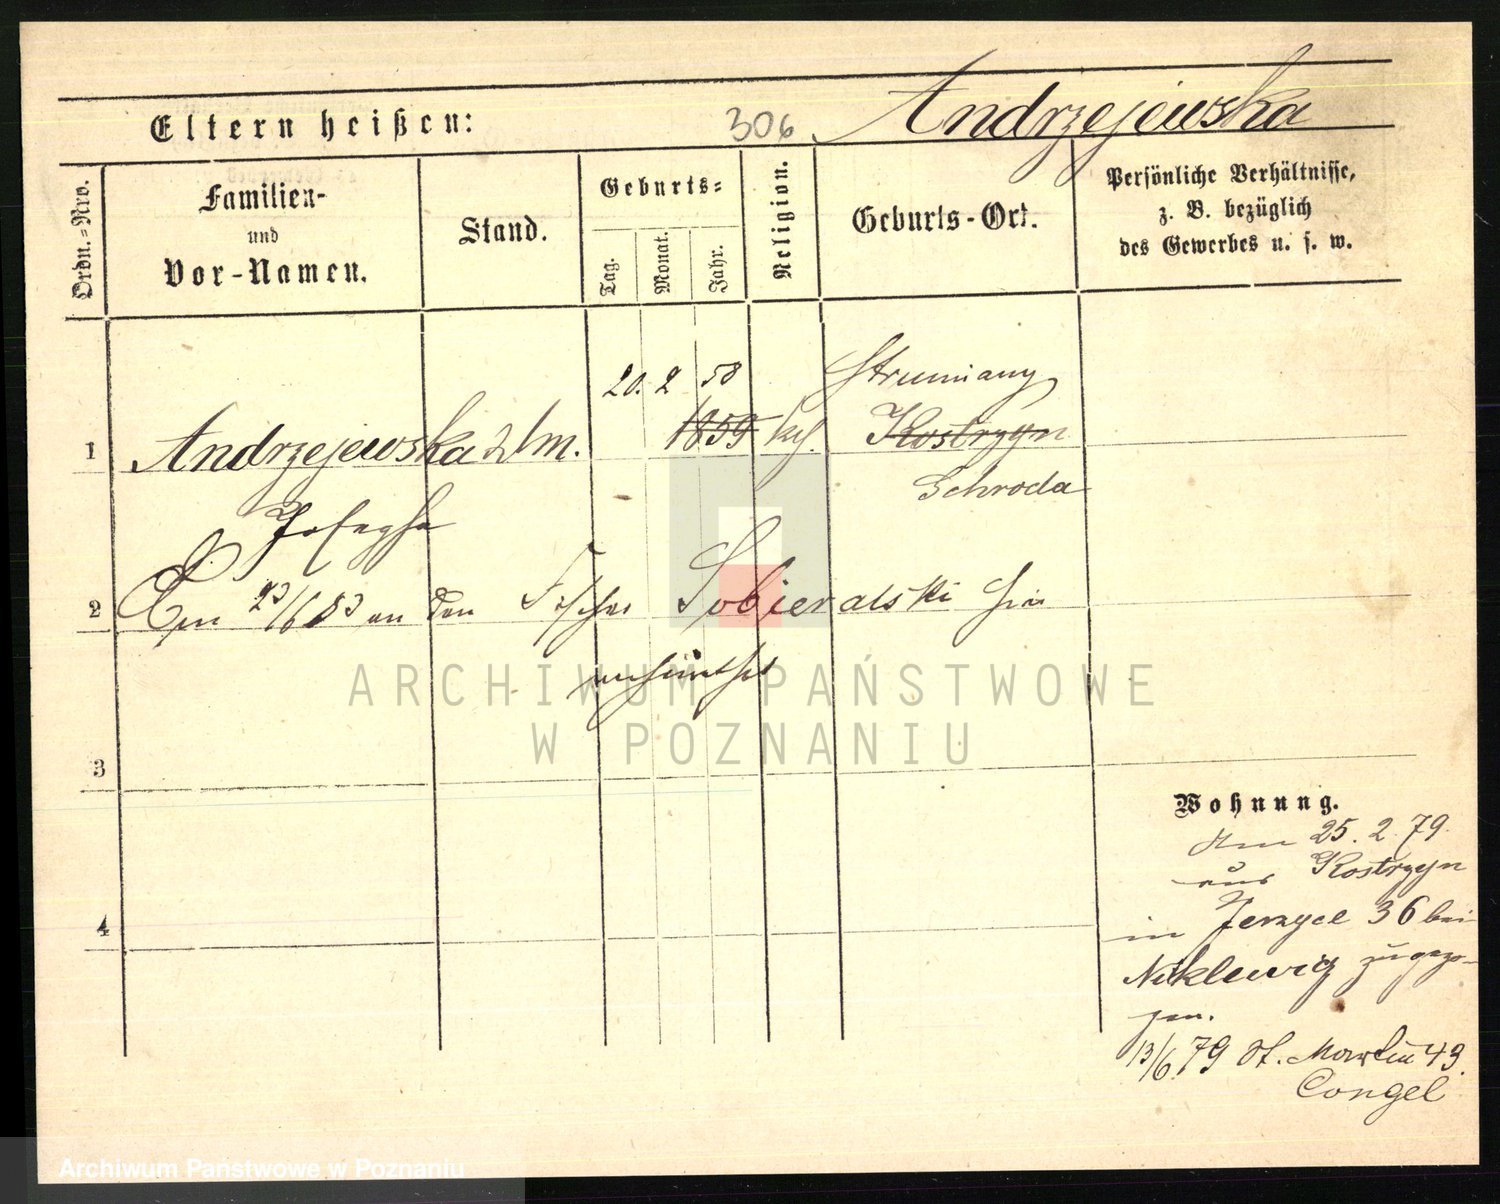 Eltern heißen:
306
Andrzejewska
Ordn.-Nro.
Familien-
und
Vor-Namen.
Stand.
Geburts-
Tag.
Monat.
Jahr.
Religion.
Geburts-Ort.
Persönliche Verhältnisse,
z. B. bezüglich
des Gewerbes u. s. w.
20. 2 58
Strumiany
1 Andrzejewska 1859 kath. Kostrzyn
Schroda
Josepha
2 23/6 83 an den Sobieralski hier
verheirathet
3
4
ARCHIWUM PAŃSTWOWE
W POZNANIU
Wohnung.
Am 25. 2. 79.
aus Kostrzyn
in Jerzyce 36 bei
zugezo-
gen.
13/6 79 St. Martin 43.
Congel
Archiwum Państwowe w Poznaniu